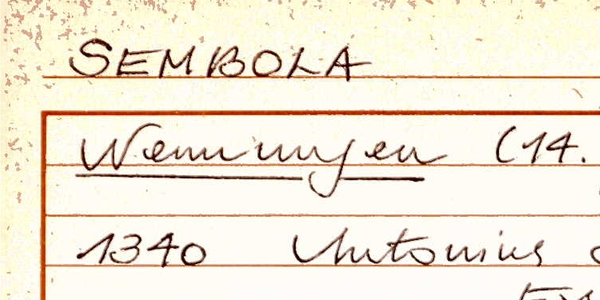 SEMBOLA
Wemmingen (14.
1340 Antonius